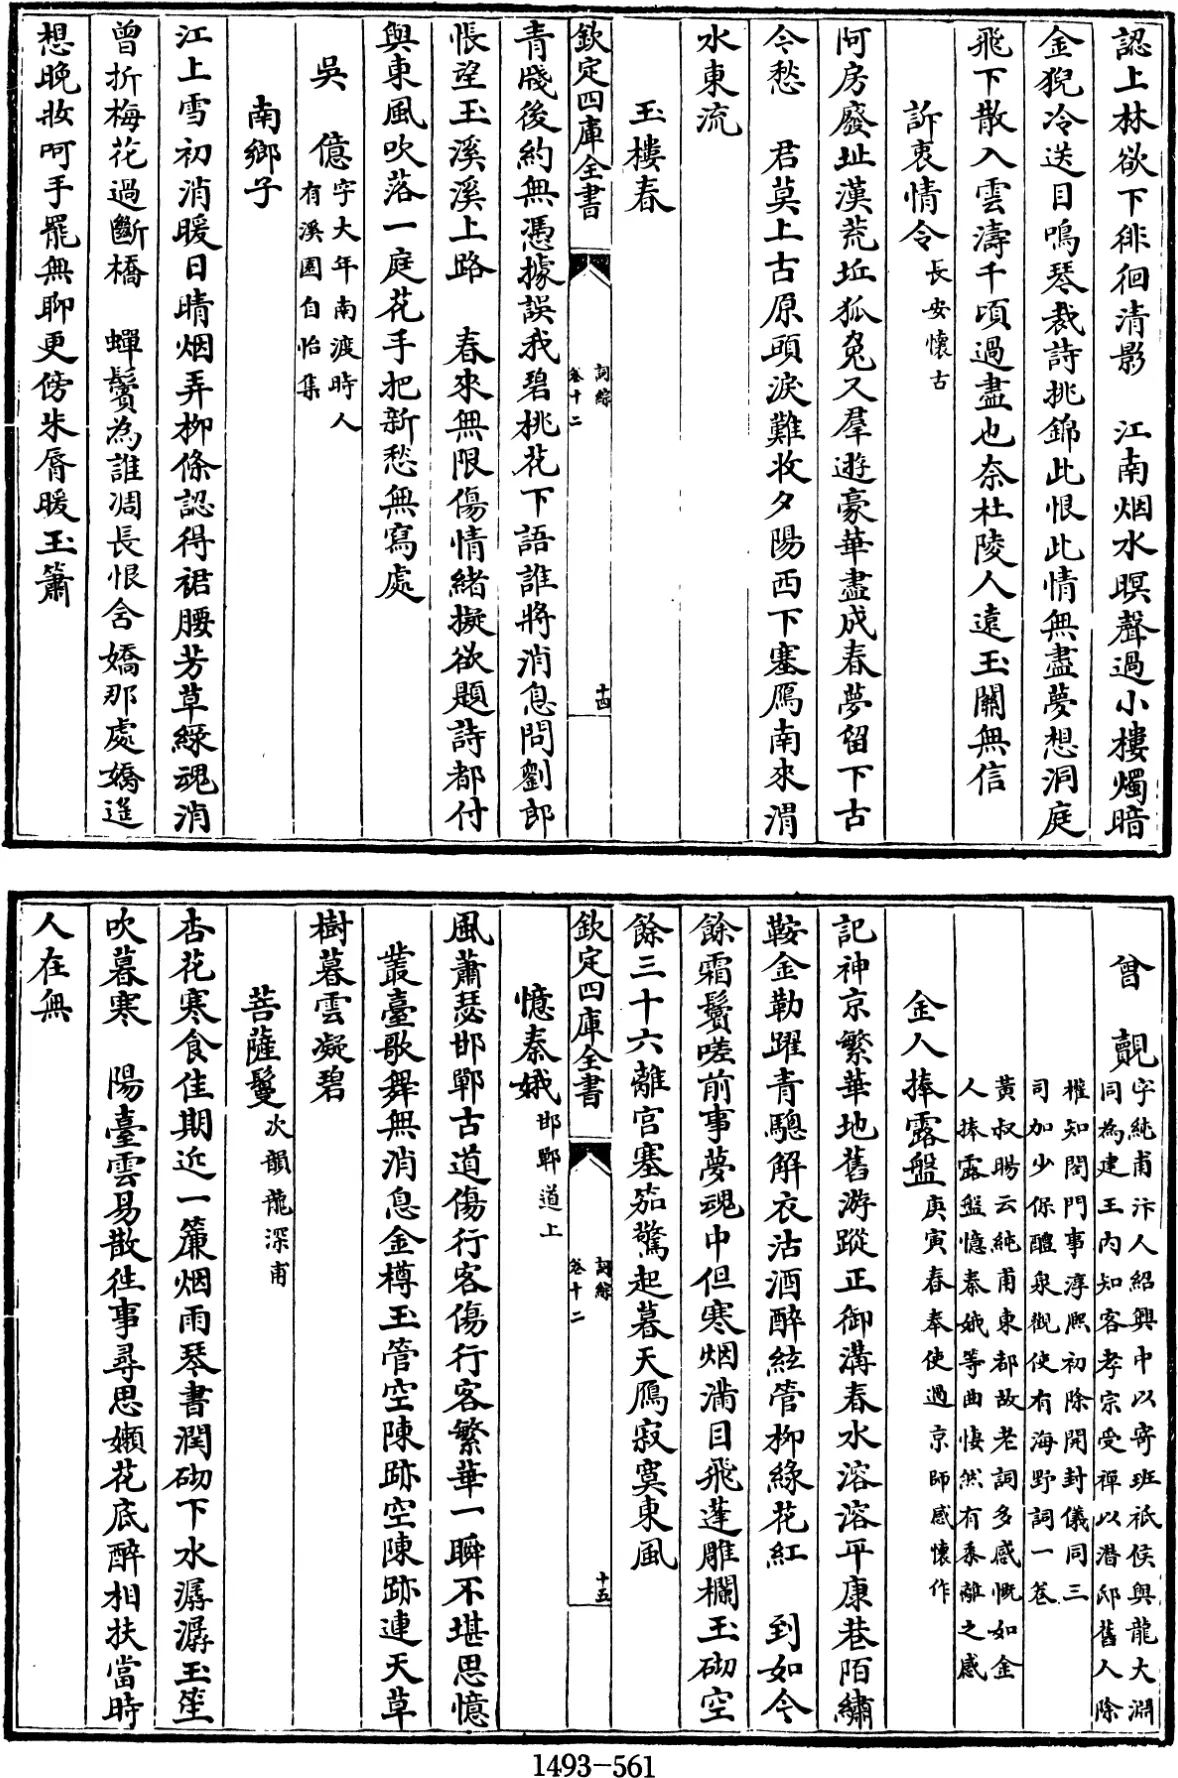 認上林欲下徘徊清影　江南烟水暝聲過小樓燭暗
金猊冷送目鳴琴裁詩挑錦此恨此情無盡夢想洞庭
飛下散入雲濤千頃過盡也奈杜陵人遠玉關無信
訴衷情令長安懷古
阿房廢址漢荒丘狐兔又羣遊豪華盡成春夢留下古
今愁　君莫上古原頭淚難收夕陽西下塞鴈南來渭
水東流
玉樓春
欽定四庫全書
詞綜
卷十二
十四
青牋後約無憑據誤我碧桃花下語誰將消息問劉郎
悵望玉溪溪上路　春來無限傷情緒擬欲題詩都付
與東風吹落一庭花手把新愁無寫處
吳　億字大年南渡時人
有溪園自怡集
南鄉子
江上雪初消暖日晴烟弄柳條認得裙腰芳草綠魂消
曾折梅花過斷橋　蟬鬢為誰凋長恨含嬌那處嬌遥
想晚妝呵手罷無聊更傍朱脣暖玉簫
曾　覿字純甫汴人紹興中以寄班祇侯與龍大淵
同為建王内知客孝宗受禪以潛邸舊人除
權知閤門事淳熙初除開封儀同三
司加少保醴泉觀使有海野詞一卷
黄叔暘云純甫東都故老詞多感慨如金
人捧露盤憶秦娥等曲悽然有黍離之感
金人捧露盤庚寅春奉使過京師感懷作
記神京繁華地舊游蹤正御溝春水溶溶平康巷陌繡
鞍金勒躍青驄解衣沽酒醉絃管柳緑花紅　到如今
餘霜鬢嗟前事夢魂中但寒烟滿目飛蓬雕欄玉砌空
餘三十六離宫塞笳驚起暮天鴈寂寞東風
欽定四庫全書
詞綜
卷十二
十五
憶秦娥邯鄲道上
風蕭瑟邯鄲古道傷行客傷行客繁華一瞬不堪思憶
叢臺歌舞無消息金樽玉管空陳跡空陳跡連天草
樹暮雲凝碧
菩薩鬘次韻龍深甫
杏花寒食佳期近一簾烟雨琴書潤砌下水潺潺玉笙
吹暮寒　陽臺雲易散往事尋思嬾花底醉相扶當時
人在無
1493-561